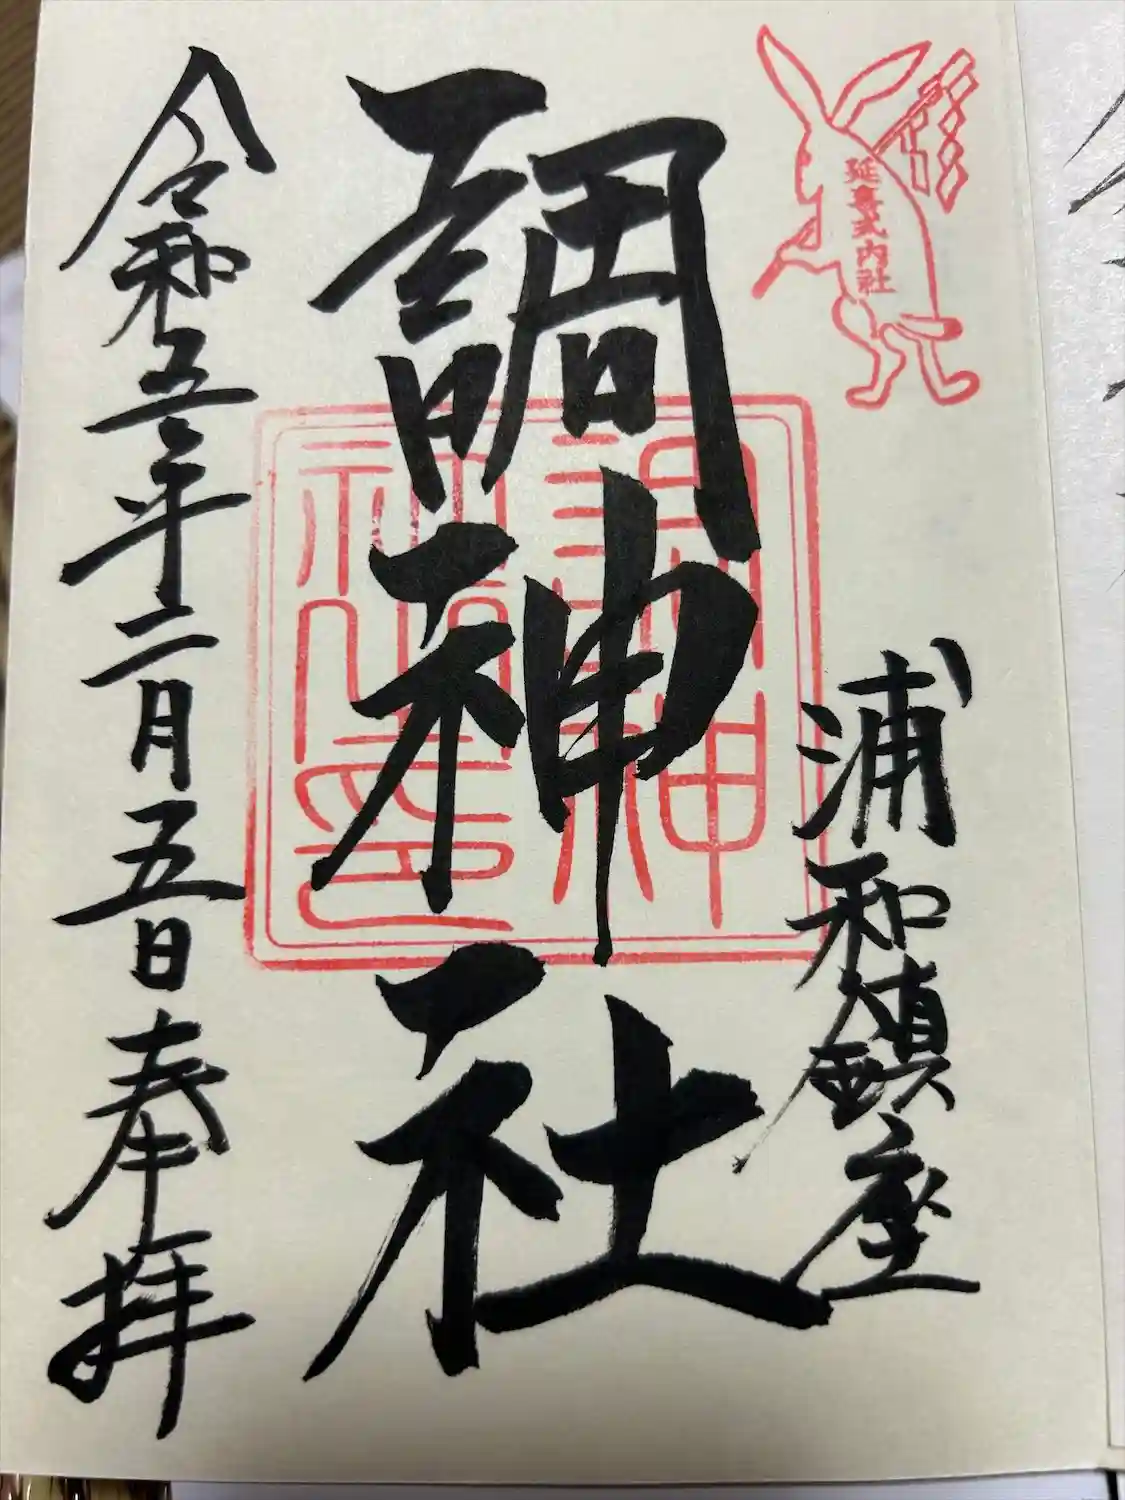 延喜式内社
浦和鎮座
調神社
調神
社之印
令和五年二月五日奉拝